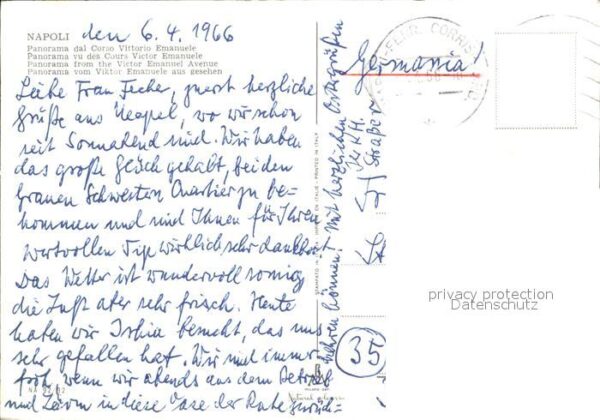 NAPOLI den 6.4.1966
Panorama dal Corso Vittorio Emanuele
Panorama vu des Cours Victor Emanuele
Panorama from the Victor Emanuel Avenue
Panorama vom Viktor Emanuele aus gesehen
Liebe Frau Fecher, zuerst herzliche
Grüße aus Neapel, wo wir schon
seit Sonnabend sind. Wir haben
das große Glück gehabt, bei den
grauen Schwestern Quartier zu be-
kommen und sind Ihnen für Ihren
wertvollen Tip wirklich sehr dankbar
Das Wetter ist wundervoll sonnig
die Luft aber sehr frisch. Heute
haben wir Ischia besucht, das uns
sehr gefallen hat. Wir sind immer
froh, wenn wir abends aus dem Betrieb
und Lärm in diese Oase der Ruhe zurück-
kehren können. Mit herzlichen Ostergrüßen
Germania!
35
privacy protection
Datenschutz